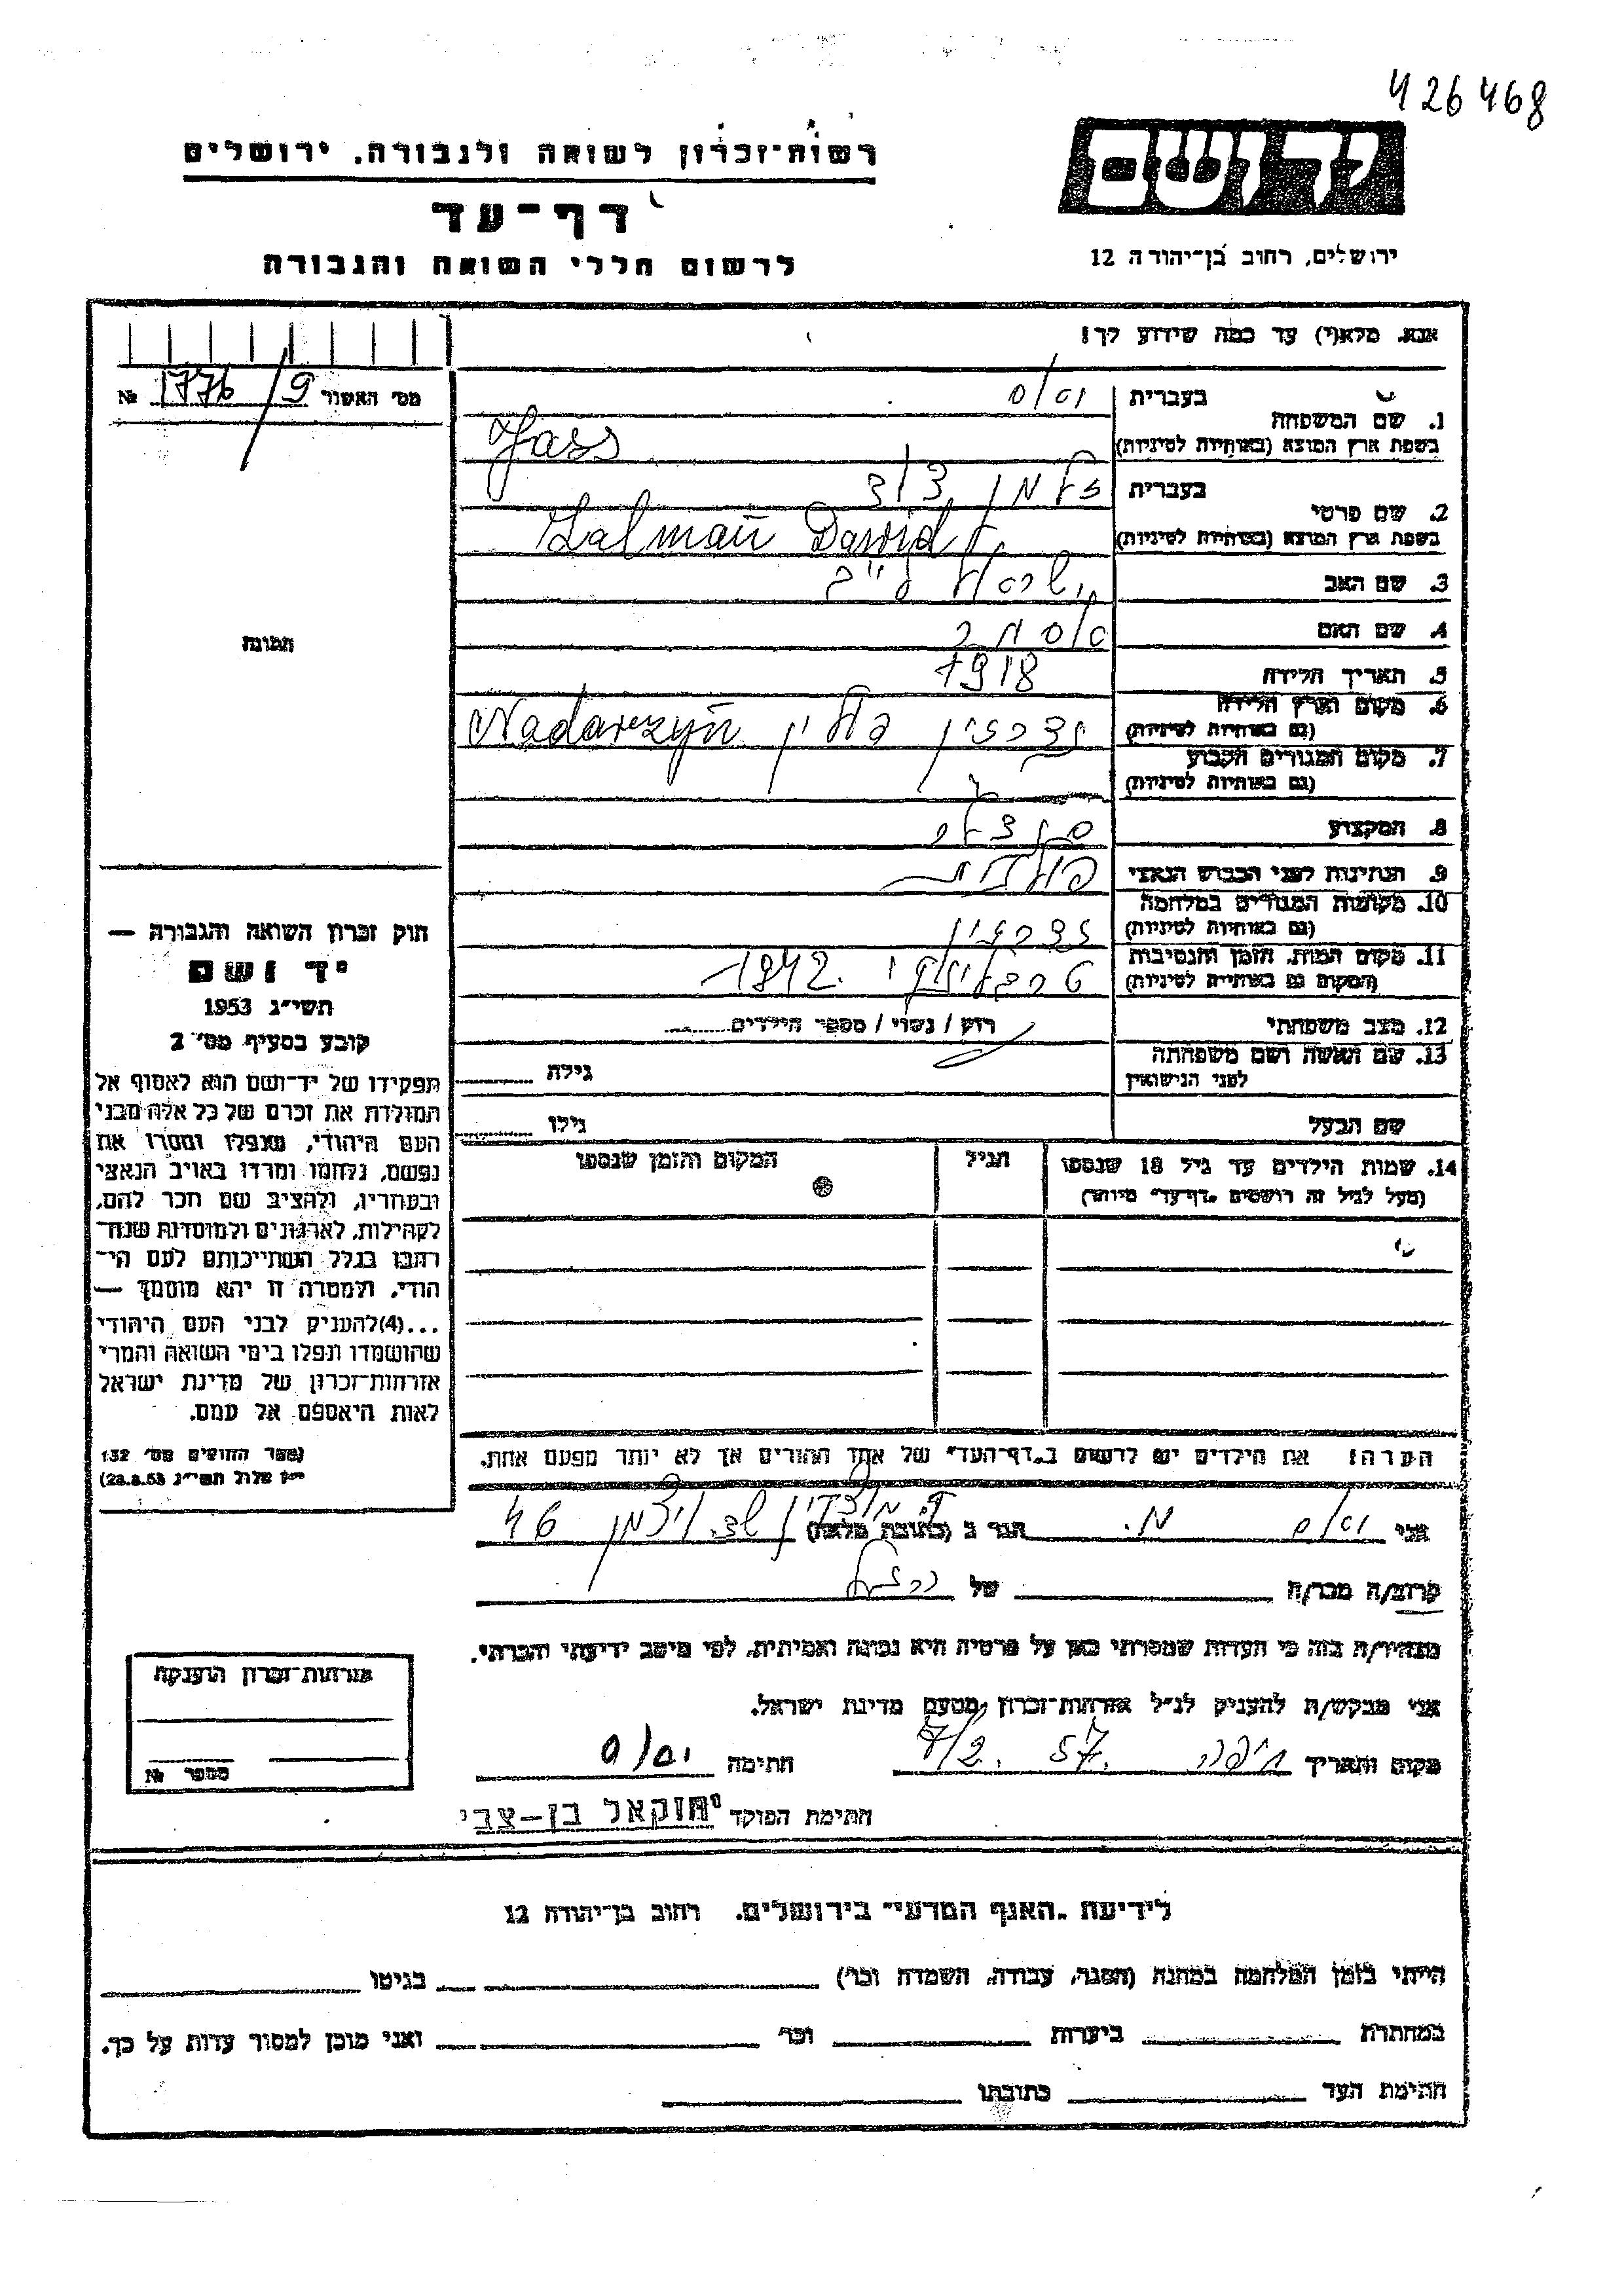 426468
רשות־זכרון לשואה ולגבורה. ירושלים
יד ושם
דף־עד
ירושלים, רחוב בן־יהודה 12
לרשום חללי השואה והגבורה
אנא. מלא(י) עד כמה שידוע לך!
מס' האשור 1776/9 №
1. שם המשפחה
בעברית
בשפת ארץ המוצא (באותיות לטיניות) Jass
2. שם פרטי
בעברית זלמן דוד
בשפת ארץ המוצא (באותיות לטיניות) Zalman Dawid
3. שם האב
4. שם האם
5. תאריך הלידה 1918
6. מקום וארץ הלידה
(גם באותיות לטיניות) נדרזין פולין Nadarzyń
7. מקום המגורים הקבוע
(גם באותיות לטיניות)
8. המקצוע סנדלר
9. הנתינות לפני הכבוש הנאצי פולנית
10. מקומות המגורים במלחמה
(גם באותיות לטיניות) נדרזין
11. מקום המות, הזמן והנסיבות
(המקום גם באותיות לטיניות) טרבלינקי 1942.
12. מצב משפחתי רוק / נשוי / מספר הילדים
13. שם האשה ושם משפחתה
לפני הנישואין
גילה
שם הבעל
גילו
14. שמות הילדים עד גיל 18 שנספו
(מעל לגיל זה רושמים „דף־עד" מיוחד)
הגיל
המקום והזמן שנספו
הערה! את הילדים יש לרשום ב„דף־העד" של אחד ההורים אך לא יותר מפעם אחת.
תמונה
חוק זכרון השואה והגבורה —
יד ושם
תשי"ג 1953
קובע בסעיף מס' 2
תפקידו של יד־ושם הוא לאסוף אל
המולדת את זכרם של כל אלה מבני
העם היהודי, שנפלו ומסרו את
נפשם, נלחמו ומרדו באויב הנאצי
ובעוזריו, ולהציב שם וזכר להם,
לקהילות, לארגונים ולמוסדות שנח־
רבו בגלל השתייכותם לעם הי־
הודי, ולמטרה זו יהא מוסמך —
...(4)להעניק לבני העם היהודי
שהושמדו ונפלו בימי השואה והמרי
אזרחות־זכרון של מדינת ישראל
לאות היאספם אל עמם.
(ספר החוקים מס' 132
י"ז אלול תשי"ג 28.8.53)
אני מ. הגר ב (כתובת מלאה) 46
קרוב/ה מכר/ה של
מצהיר/ה בזה כי העדות שמסרתי כאן על פרטיה היא נכונה ואמיתית, לפי מיטב ידיעתי והכרתי.
אני מבקש/ת להעניק לנ"ל אזרחות־זכרון מטעם מדינת ישראל.
מקום ותאריך חיפה 7/2. 57. חתימה
חתימת הפוקד יחזקאל בן–צבי
אזרחות־זכרון הוענקה
מספר №
לידיעת „האגף המדעי" בירושלים. רחוב בן־יהודה 12
הייתי בזמן המלחמה במחנה (הסגר, עבודה, השמדה וכו') בגיטו
במחתרת ביערות וכו' ואני מוכן למסור עדות על כך.
חתימת העד כתובתו